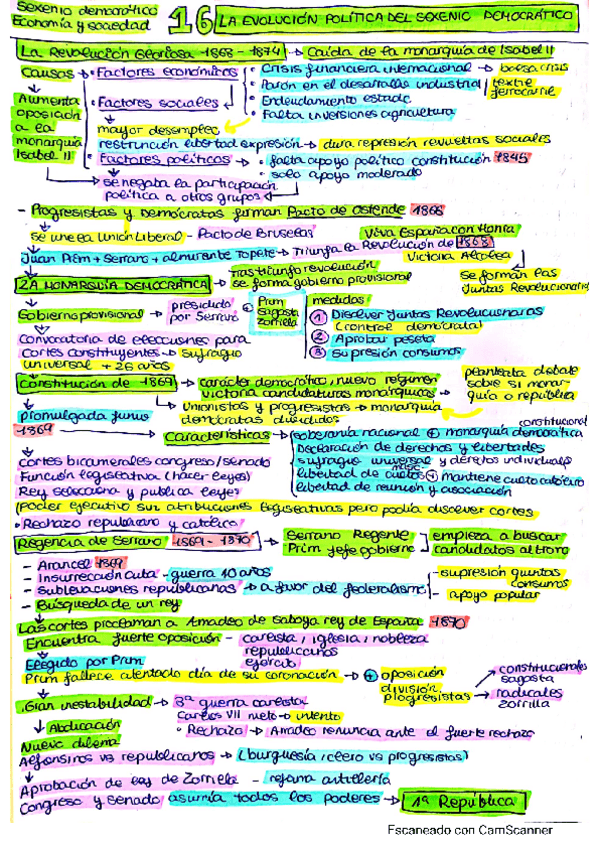 Sexenio democrático
Economía y sociedad
16
LA EVOLUCIÓN POLÍTICA DEL SEXENIO DEMOCRÁTICO
La Revolución Gloriosa 1868 - 1874 → Caída de la monarquía de Isabel II
Causas → • Factores económicos • Crisis financiera internacional → bolsa crisis
• Parón en el desarrollo industrial textil
ferrocarril
Aumenta • Factores sociales • Endeudamiento estado
oposición • Falta inversiones agricultura
a la mayor desempleo
monarquía restrunción libertad expresión → dura represión revueltas sociales
Isabel II • Factores políticos → • falta apoyo político constitución 1845
• solo apoyo moderado
→ se negaba la participación
política a otros grupos
- Progresistas y Demócratas firman Pacto de Ostende 1866
Se une la Unión Liberal - Pacto de Bruselas Viva España con Honra
Juan Prim + Serrano + almirante Topete → Triunfa la Revolución de 1868
Victoria Alcolea
Se forman las
Juntas Revolucionarias
2A MONARQUÍA DEMOCRÁTICA → tras triunfo revolución
se forma gobierno provisional
Gobierno provisional → presidido
por Serrano + Prim
Sagasta
Zorrilla
medidas
1 Disolver Juntas Revolucionarias
(control demócrata)
2 Aprobar peseta
3 Supresión consumos
Convocatoria de elecciones para
Cortes Constituyentes → Sufragio
universal + 25 años
Constitución de 1869 → Carácter democrático, nuevo régimen
victoria candidaturas monárquicas → planteaba debate
sobre si monar-
quía o república
→ Unionistas y progresistas → monarquía
demócratas divididos
Promulgada junio
1869
Características → soberanía nacional + monarquía democrática
constitucional
Declaración de derechos y libertades
sufragio universal y derechos individuales
masc
libertad de cultos + mantiene culto católico
libertad de reunión y asociación
Cortes bicamerales congreso/senado
Función legislativa (hacer leyes)
Rey selecciona y publica leyes
(Poder ejecutivo sin atribuciones legislativas pero podía disolver cortes
• Rechazo republicano y católico
Regencia de Serrano 1869 - 1870 → Serrano Regente
Prim jefe gobierno empieza a buscar
candidatos al trono
- Arancel 1869
- Insurrección Cuba - guerra 10 años
- Sublevaciones republicanas → a favor del federalismo - supresión quintas
consumos
- apoyo popular
- Búsqueda de un rey
Las cortes proclaman a Amadeo de Saboya rey de España 1870
Encuentra fuerte oposición - carlista, iglesia, nobleza
republicanos
ejército
Elegido por Prim
Prim fallece atentado día de su coronación → + oposición
división
progresistas
constitucionales
sagasta
radicales
zorrilla
Gran inestabilidad → 3ª guerra carlista
Carlos VII nieto → intento
• Rechazo → Amadeo renuncia ante el fuerte rechazo
Abdicación
Nuevo dilema
Alfonsinos vs republicanos → (burguesía, clero vs progresistas)
Aprobación de ley de Zorrilla - reforma artillería
Congreso y Senado asumía todos los poderes → 1ª República
Escaneado con CamScanner